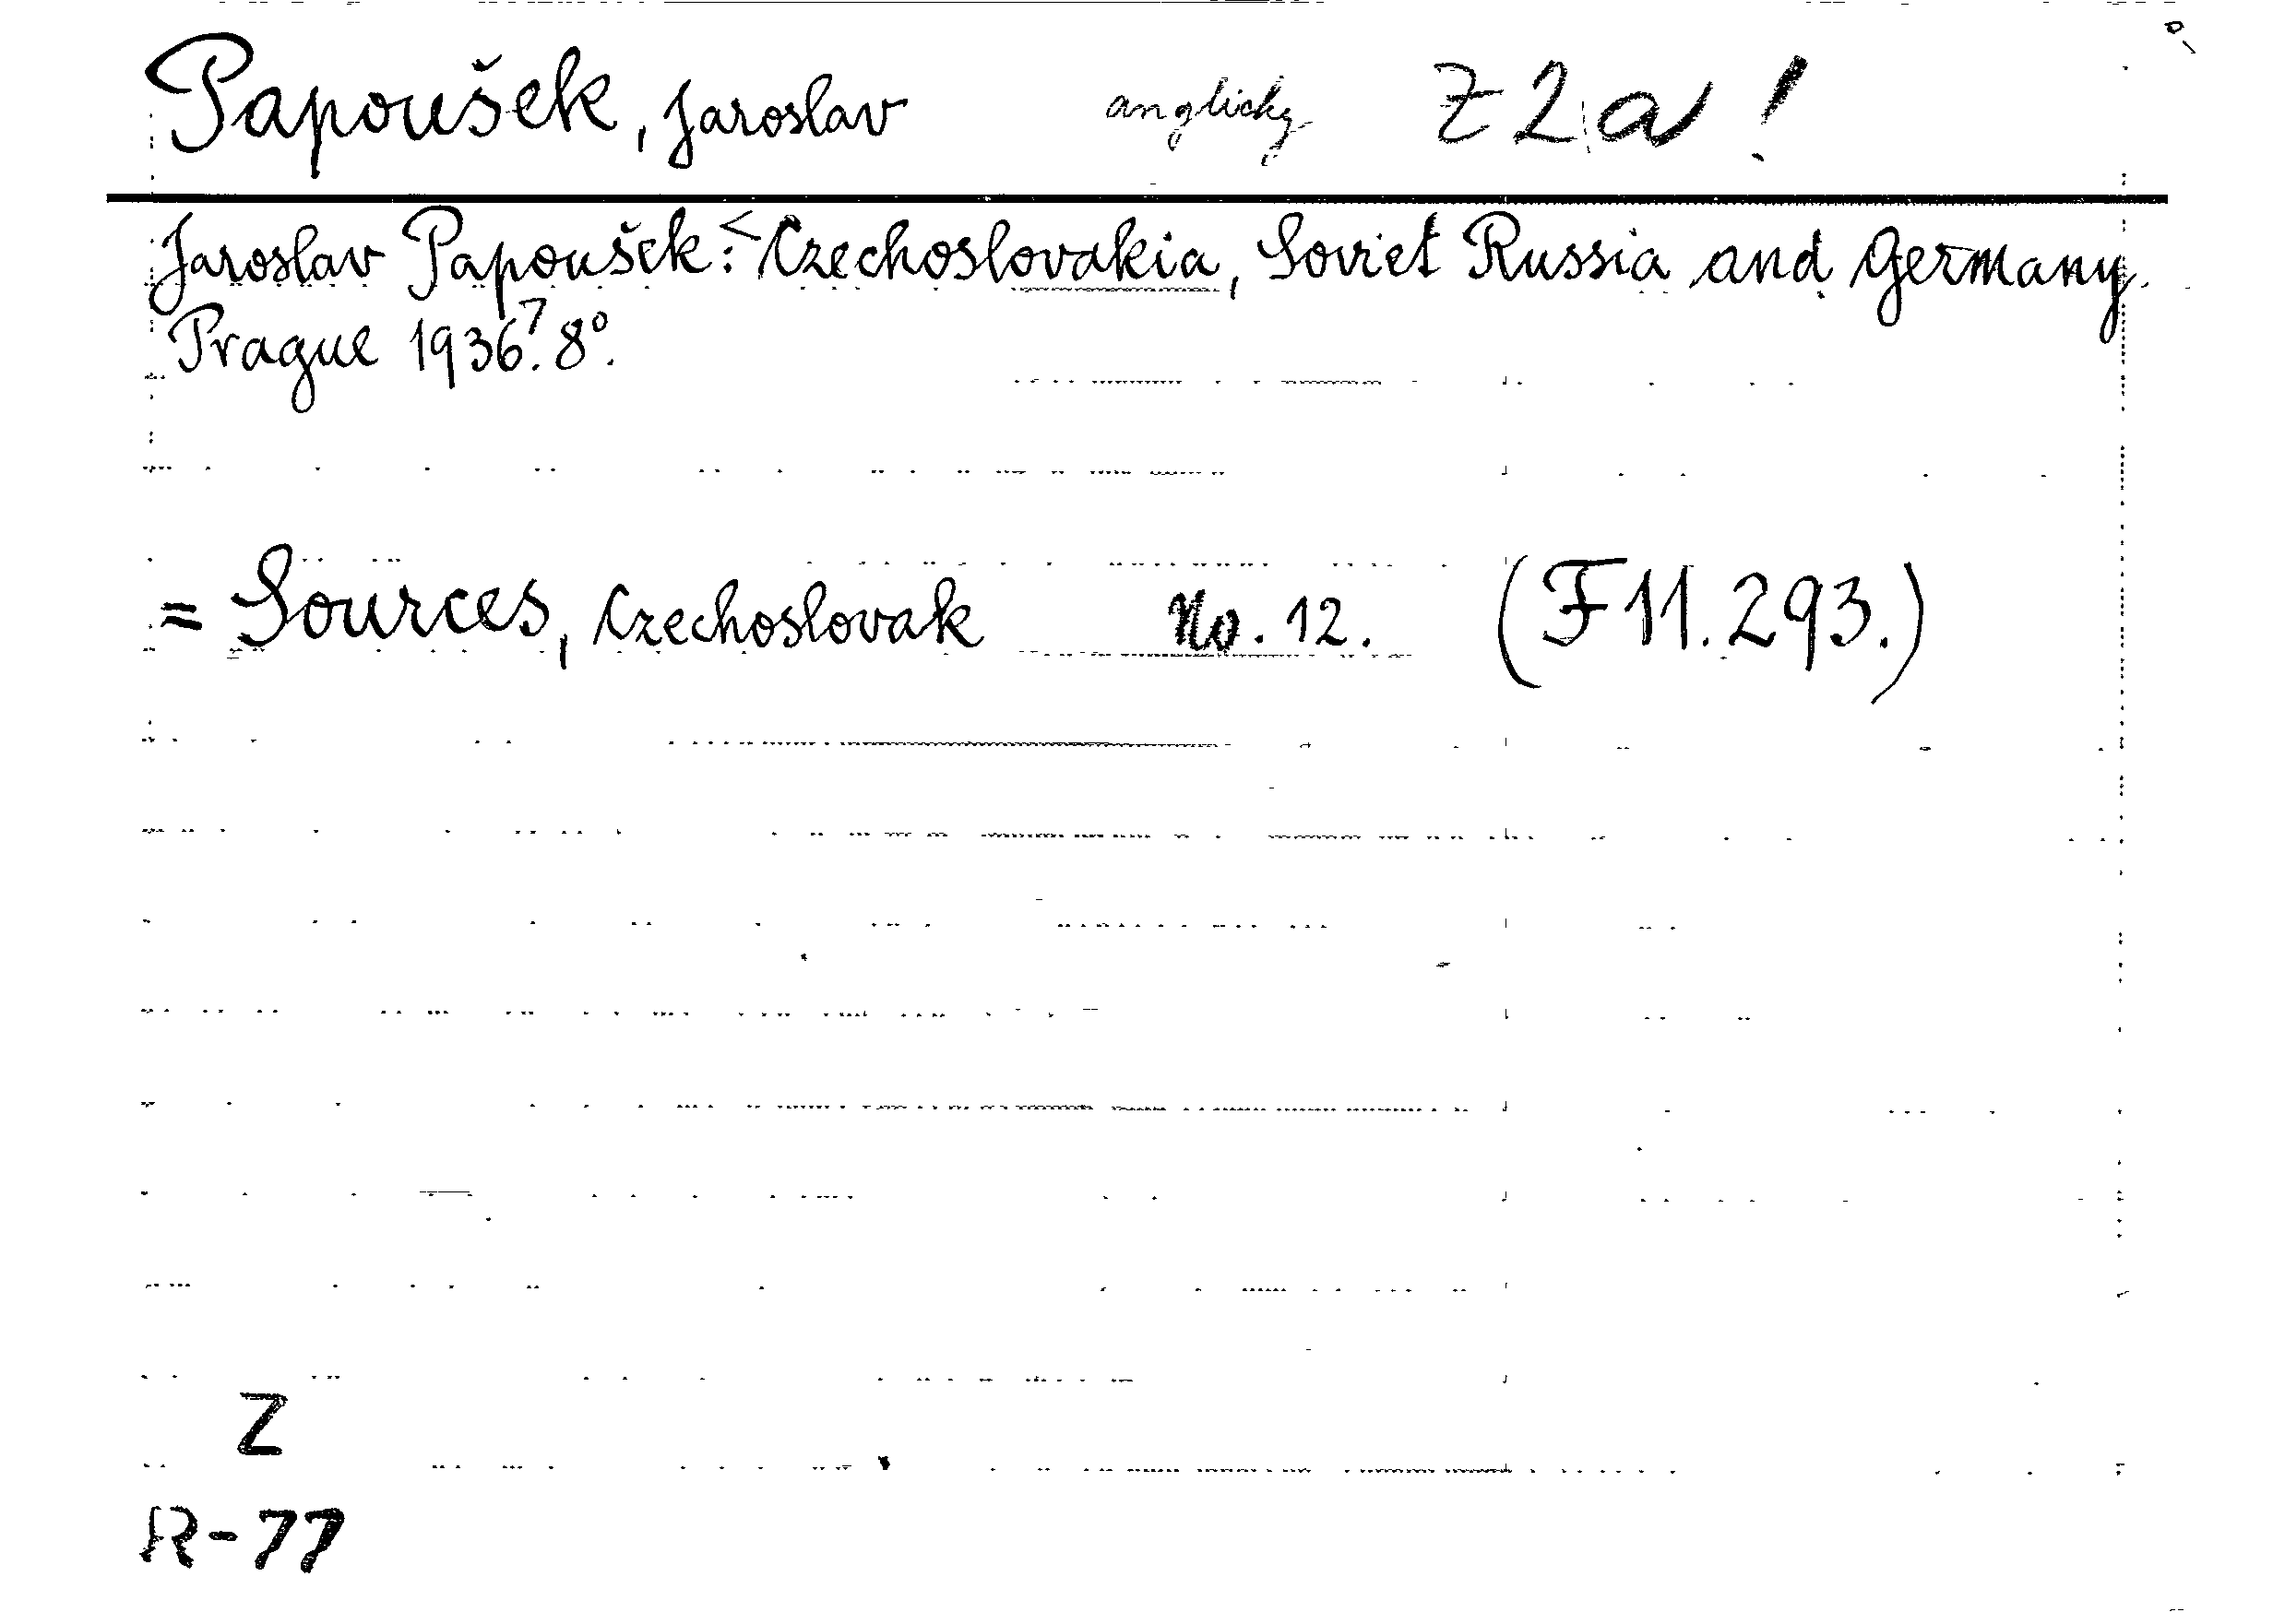 Papoušek, Jaroslav anglicky Z 2 a !
Jaroslav Papoušek: < Czechoslovakia, Soviet Russia and Germany.
Prague 1936⁷. 8°.
= Sources, Czechoslovak No. 12. (F 11. 293.)
Z
R-77